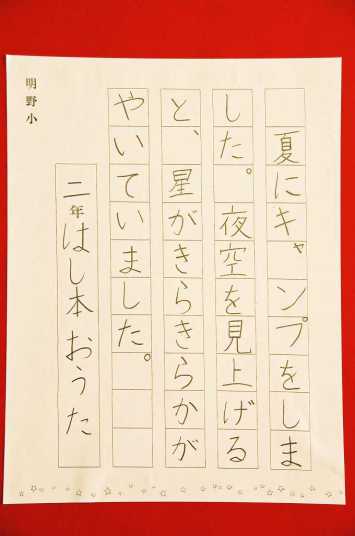 夏にキャンプをしま
した。夜空を見上げる
と、星がきらきらかが
やいていました。
二年はし本おうた
明野小